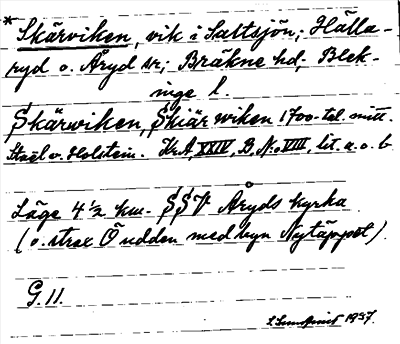 * Skärviken, vik i Saltsjön; Hälla-
ryd o. Åryd sr; Bräkne hd; Blek-
inge l.
Skärwiken, Skiärwiken 1700-tal. mitt.
Staël v. Holstein. Kr. A, XXIV, B, No VIII, lit. a. o. b
Läge 4 ½ km. SSV Åryds kyrka
(o. strax Ö udden med byn Nytäppet).
G. 11.
1937.